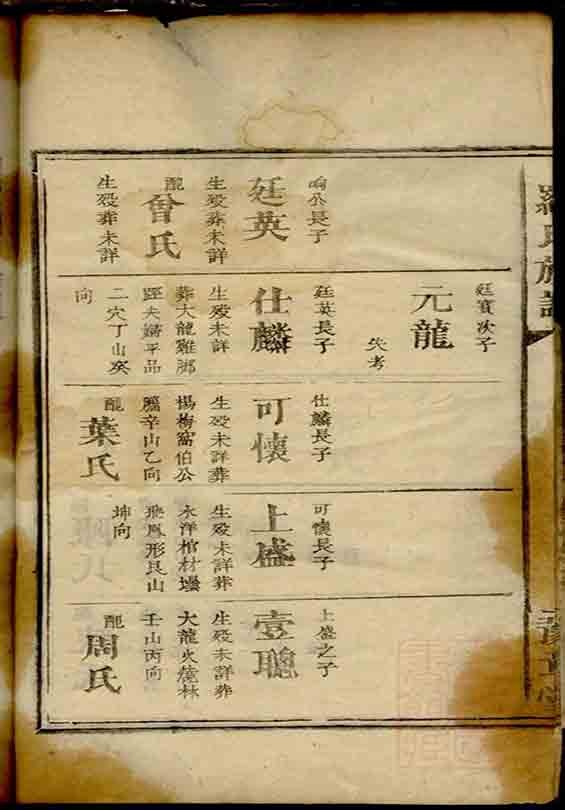 羅氏族譜
豫章堂
响公長子
廷英
生殁葬未詳
配
曾氏
生殁葬未詳
廷寶次子
元龍
失考
廷英長子
仕麟
生殁未詳
葬大龍雞脚
蹚夫婦平品
二穴丁山癸
向
仕麟長子
可懷
生殁未詳葬
楊梅窩伯公
辛山乙向
配
葉氏
可懷長子
上盛
生殁未詳葬
永洋棺材壢
飛鳳形艮山
坤向
上盛之子
壹聰
生殁未詳葬
大龍火燒林
壬山丙向
配
周氏